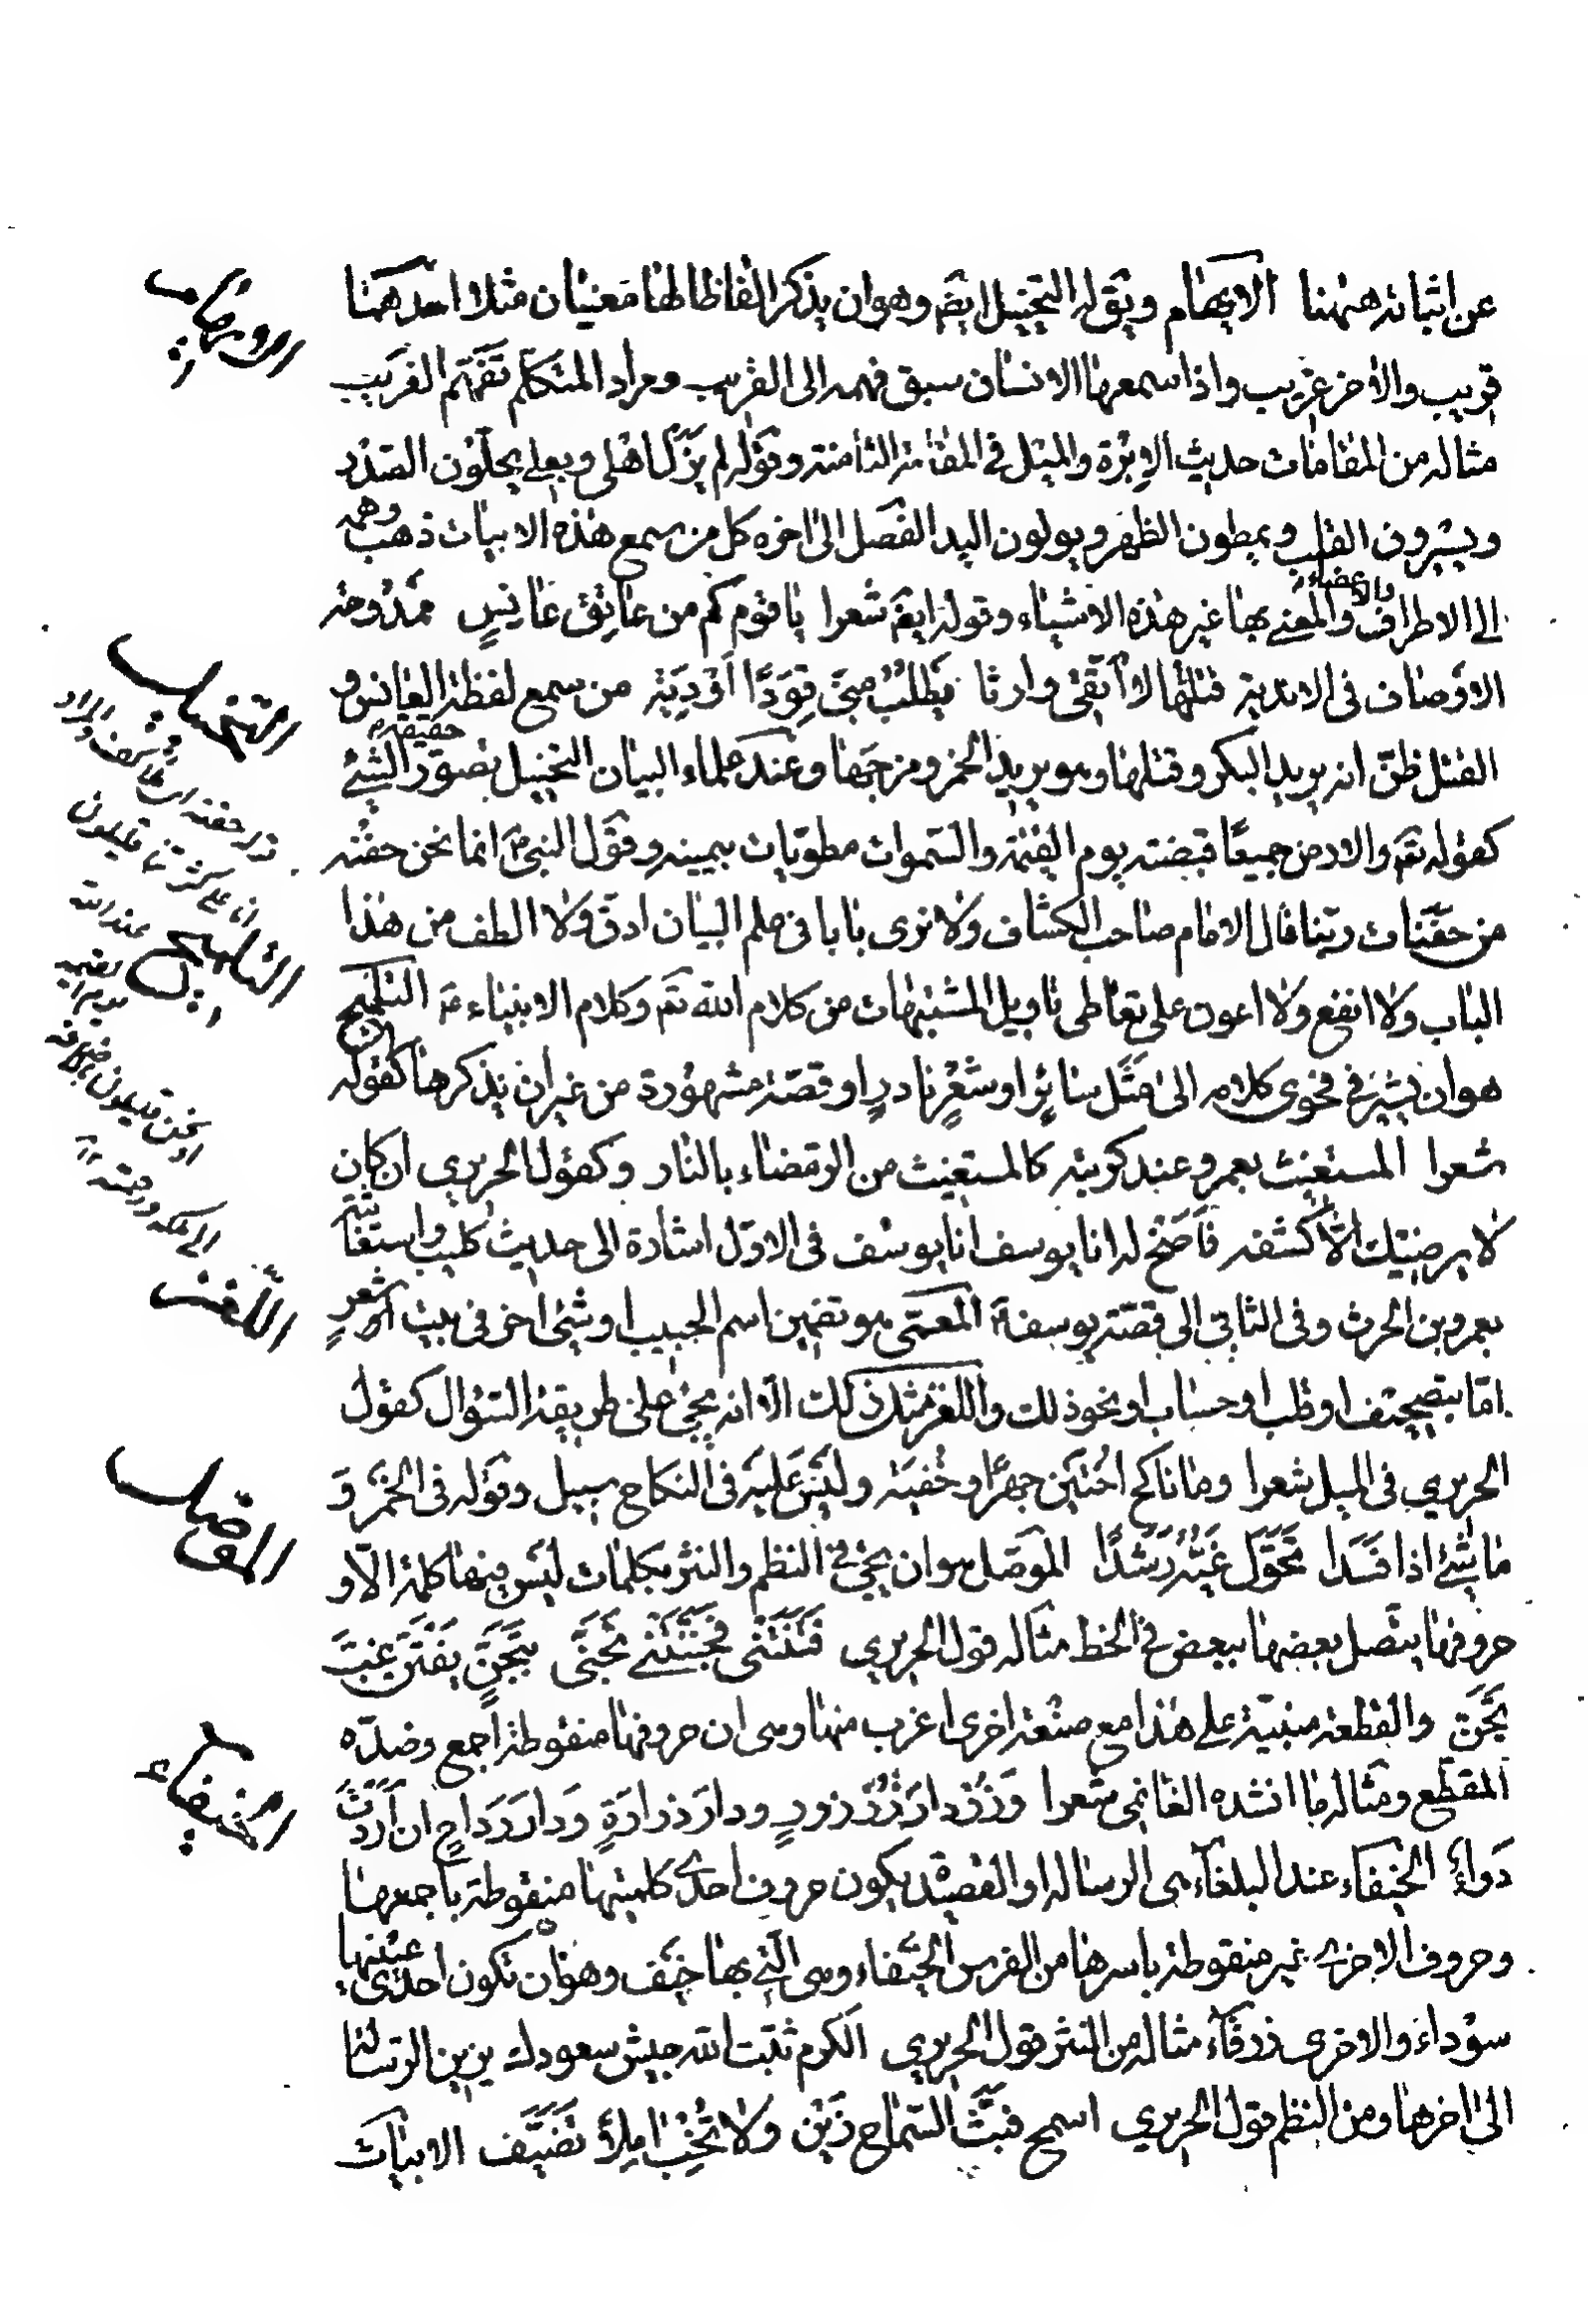 عن اثباته ههنا الايهام ويق له التخييل ايضم وهو ان يذكر الفاظا لها معنيان مثلا احدهما
قريب والاخر غريب واذا سمعها الانسان سبق فهمه الى القريب ومراد المتكلم تفهم الغريب
مثاله من المقامات حديث الابرة والميل في المقامة الثامنة وقوله لم يزل اهلى وبعلى يحلون الصدر
ويسيرون القلب ويمطون الظهر ويولون اليد الفصل الى اخره كل من سمع هذه الابيات ذهب وهمه
الى الاطراف والاعضاء والمعنى بها غير هذه الاشياء وقوله ايضم شعرا يا قوم كم من عاتق عانس ممدوحة
الاوصاف فى الاندية قتلتها لا اتقى وارثا يطلب منى قودا او دية من سمع لفظة العانس و
القتل ظن انه يريد البكر وقتلها وهو يريد الخمر ومزجها وعند علماء البيان التخييل تصوير حقيقة الشئ
كقوله تعم والارض جميعا قبضته يوم القيمة والسموات مطويات بيمينه وقول النبى م انما نحن حفنة
من حفنات ربنا قال الامام صاحب الكشاف ولا نرى بابا فى علم البيان ادق ولا الطف من هذا
الباب ولا انفع ولا اعون على تعاطى تاويل المشتبهات من كلام الله تعم وكلام الانبياء التلميح
هو ان يشير فى فحوى كلامه الى مثل سائر او شعر نادر او قصة مشهورة من غير ان يذكرها كقوله
شعرا المستغيث بعمرو عند كربته كالمستغيث من الرمضاء بالنار وكقول الحريرى ان كان
لا يرضيك الا كشفه فاصخ له انا يوسف انا يوسف فى الاول اشارة الى حديث كليب واستغاثته
بعمرو بن الحرث وفى الثانى الى قصة يوسف المعمى هو تضمين اسم الحبيب او شئ اخر فى بيت شعر
اما بتصحيف او قلب او حساب او نحو ذلك واللغز مثل ذلك الا انه يجئ على طريقة السؤال كقول
الحريرى فى الميل شعرا وما ناكح اختين جهرا وخفية وليس عليه فى النكاح سبيل وقوله فى الخمر و
ما شئ اذا فسدا تحول غيه رشدا الموصل هو ان يجئ فى النظم والنثر بكلمات ليس منها كلمة الا و
حروفها يتصل بعضها ببعض فى الخط مثاله قول الحريرى فتنتنى فجننتنى تجنى بتجن يفتن غب
تجن والقطعة مبنية على هذا مع صنعة اخرى اغرب منها وهى ان حروفها منقوطة اجمع وضده
المقطع ومثاله ما انشده الغانمى شعرا وزر دار زرزور ودار زرارة ودار رداح ان اردت
دواء الخيفاء عند البلغاء هى الرسالة او القصيدة يكون حروف احدى كلمتيها منقوطة باجمعها
وحروف الاخرى غير منقوطة باسرها من الفرس الخيفاء وهى التى بها خيف وهو ان تكون احدى عينيها
سوداء والاخرى زرقاء مثاله من النثر قول الحريرى الكرم ثبت الله جيش سعودك يزين الرسالة
الى اخرها ومن النظم قول الحريرى اسمح فبث السماح زين ولا تخب املا تضيف الابيات
التخييل
التلميح
اللغز
الموصل
الخيفاء